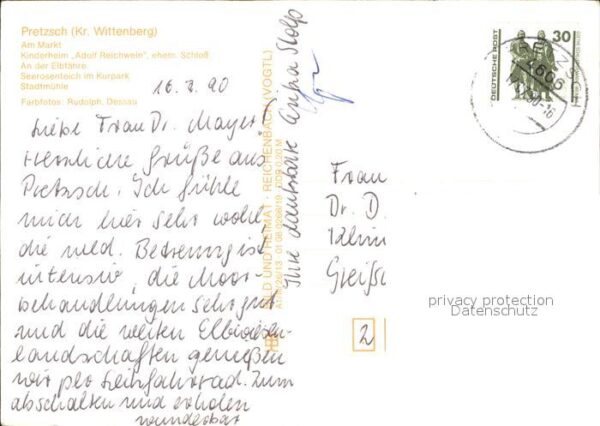 Pretzsch (Kr. Wittenberg)
Am Markt
Kinderheim „Adolf Reichwein", ehem. Schloß
An der Elbfähre
Seerosenteich im Kurpark
Stadtmühle
Farbfotos: Rudolph, Dessau
16. 8. 90
Liebe Frau Dr. Mayer!
Herzliche Grüße aus
Pretzsch. Ich fühle
mich hier sehr wohl
die med. Betreuung ist
intensiv, die Moor-
behandlungen sehr gut
und die weiten Elbwiesen-
landschaften genießen
wir per Leihfahrrad. Zum
abschalten und erholen
wunderbar
Ihre dankbare
BILD UND HEIMAT · REICHENBACH (VOGTL)
DEUTSCHE POST
30
Frau
Dr. D.
Klin
Greifs
2
privacy protection
Datenschutz